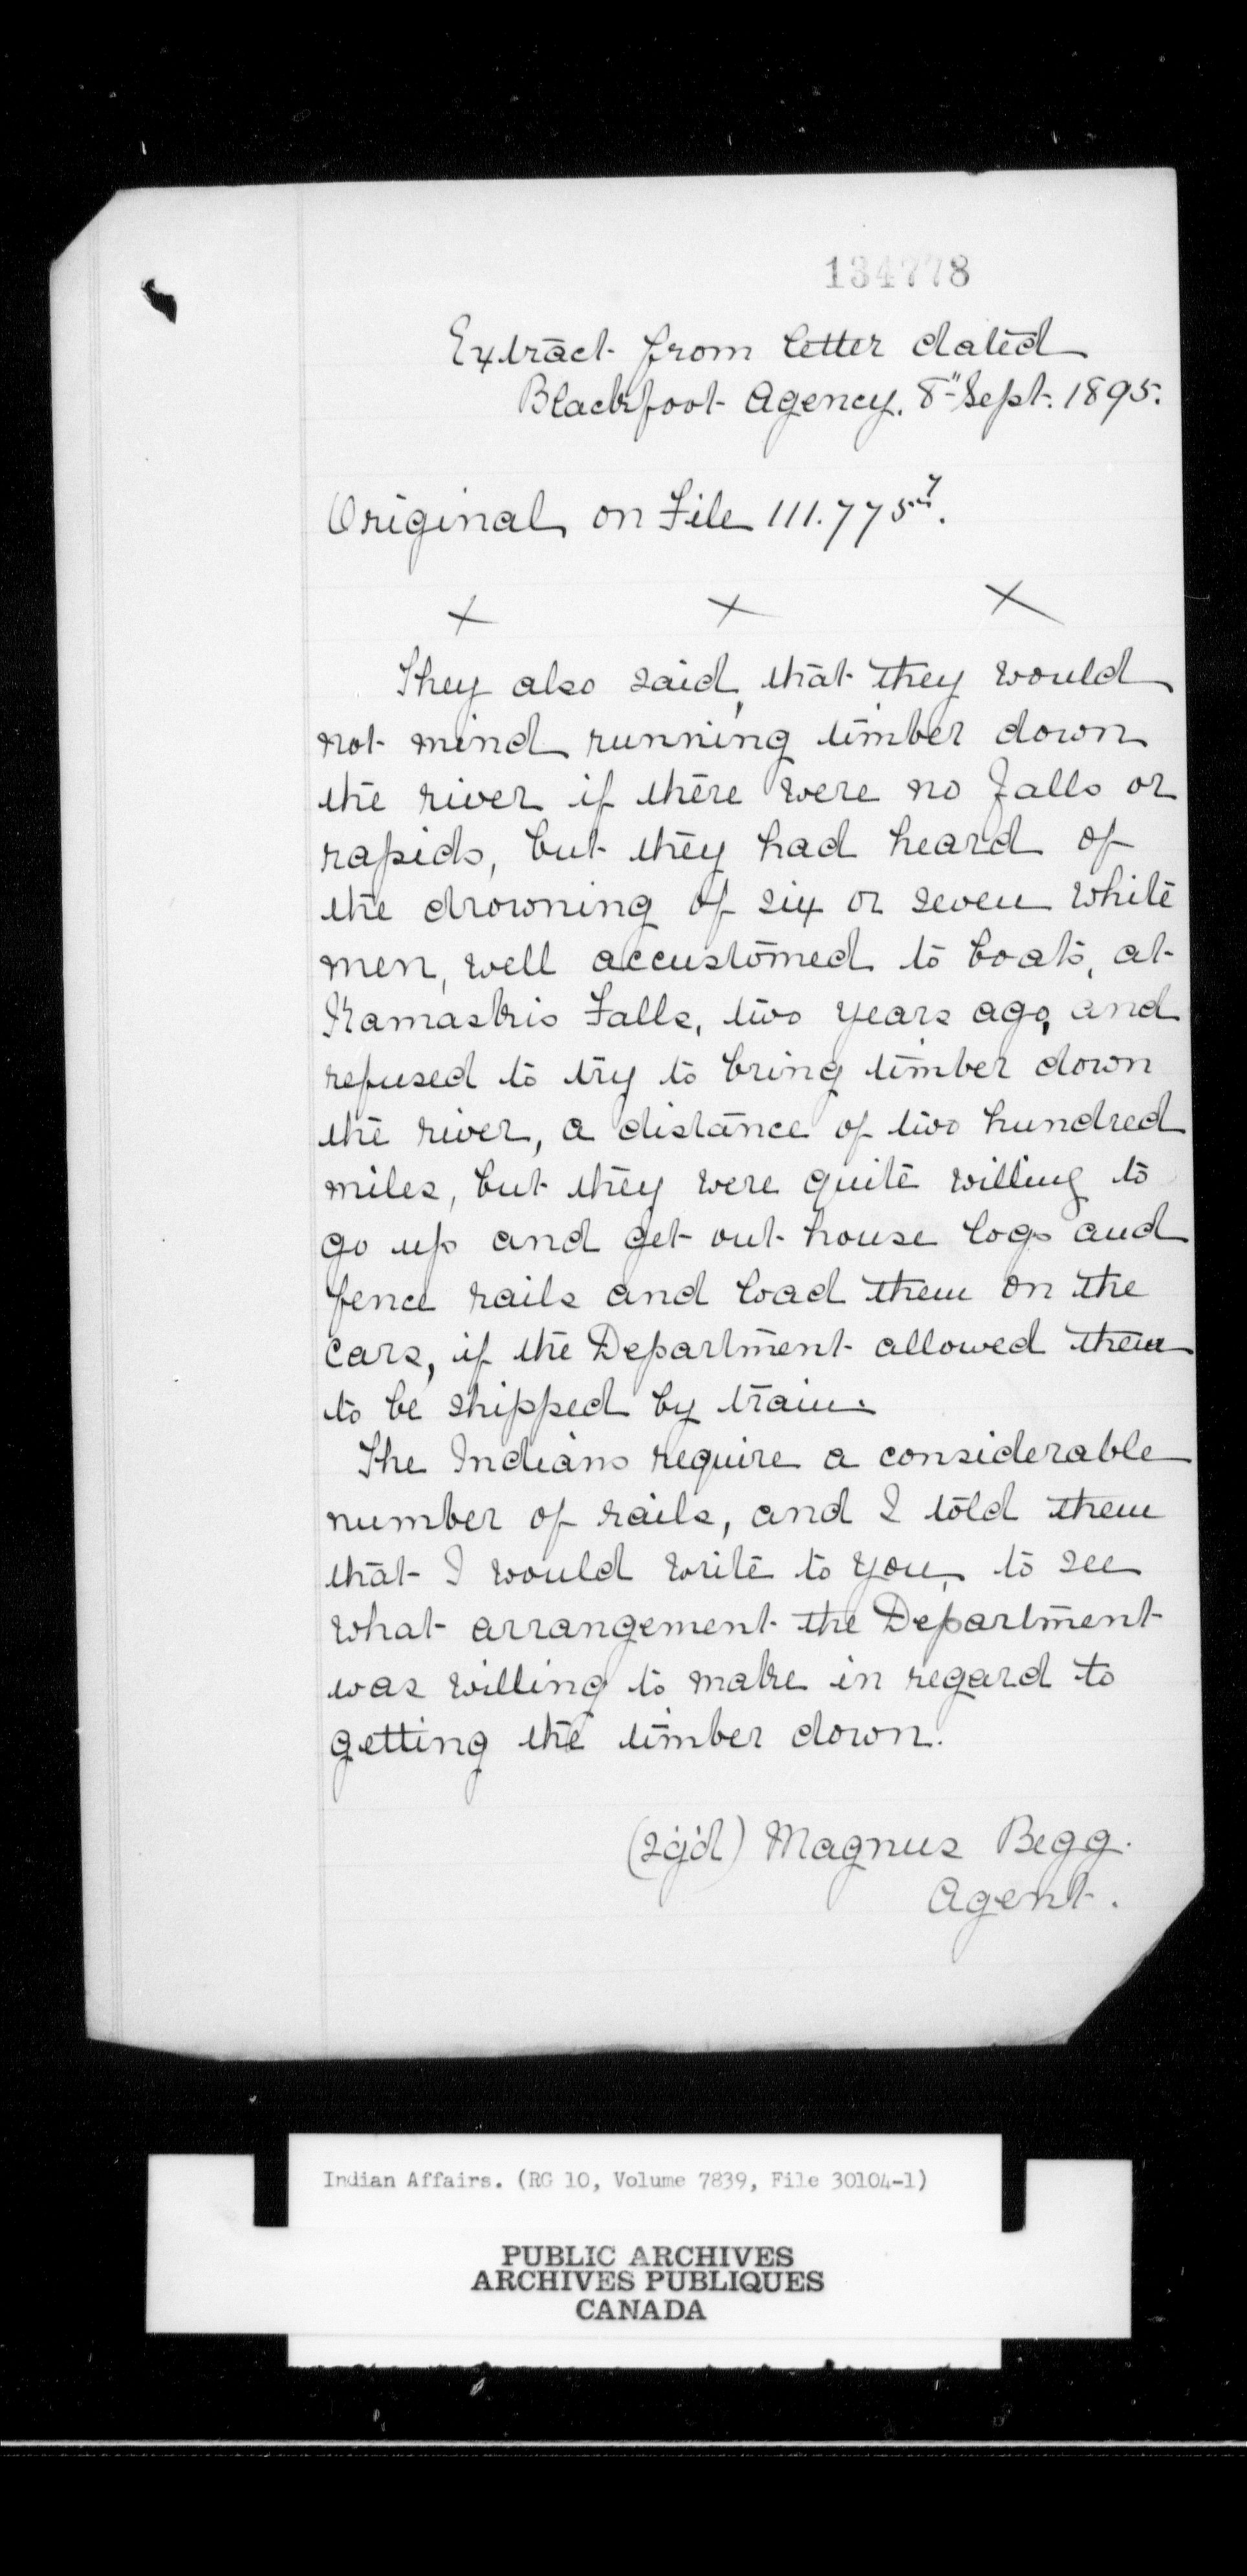 134778
Extract from letter dated
Blackfoot Agency. 8" Sept. 1895.
Original on File 111.775
x x x
They also said, that they would
not mind running timber down
the river if there were no Falls or
rapids, but they had heard of
the drowning of six or seven white
men, well accustomed to boats, at
Kamaskis Falls, two years ago, and
refused to try to bring timber down
the river, a distance of two hundred
miles, but they were quite willing to
go up and get out house logs and
fence rails and load them on the
cars, if the Department allowed them
to be shipped by train.
The Indians require a considerable
number of rails, and I told them
that I would write to you, to see
what arrangement the Department
was willing to make in regard to
getting the timber down.
(sg'd) Magnus Begg.
Agent.
Indian Affairs. (RG 10, Volume 7839, File 30104-1)
PUBLIC ARCHIVES
ARCHIVES PUBLIQUES
CANADA